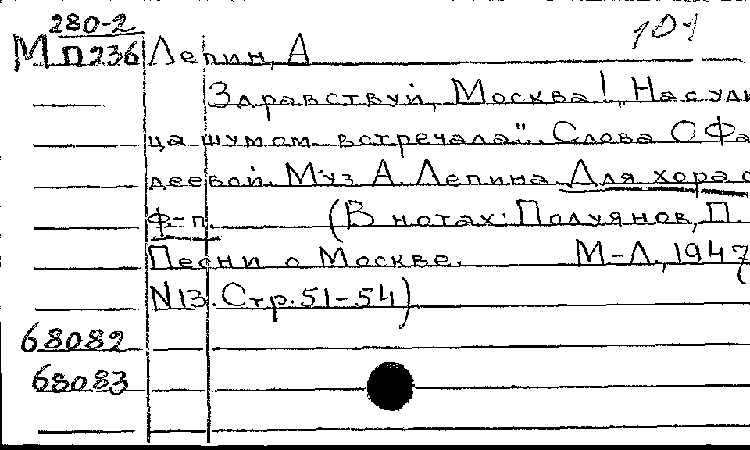 280-2
101
М п236 Лепин, А
Здравствуй, Москва! „Нас ули
ца шумом встречала". Слова О Фа
деевой. Муз А. Лепина. Для хора с
ф-п. (В нотах: Полуянов, П.
Песни о Москве. М-Л, 1947
N13. Стр. 51-54)
68082
68083